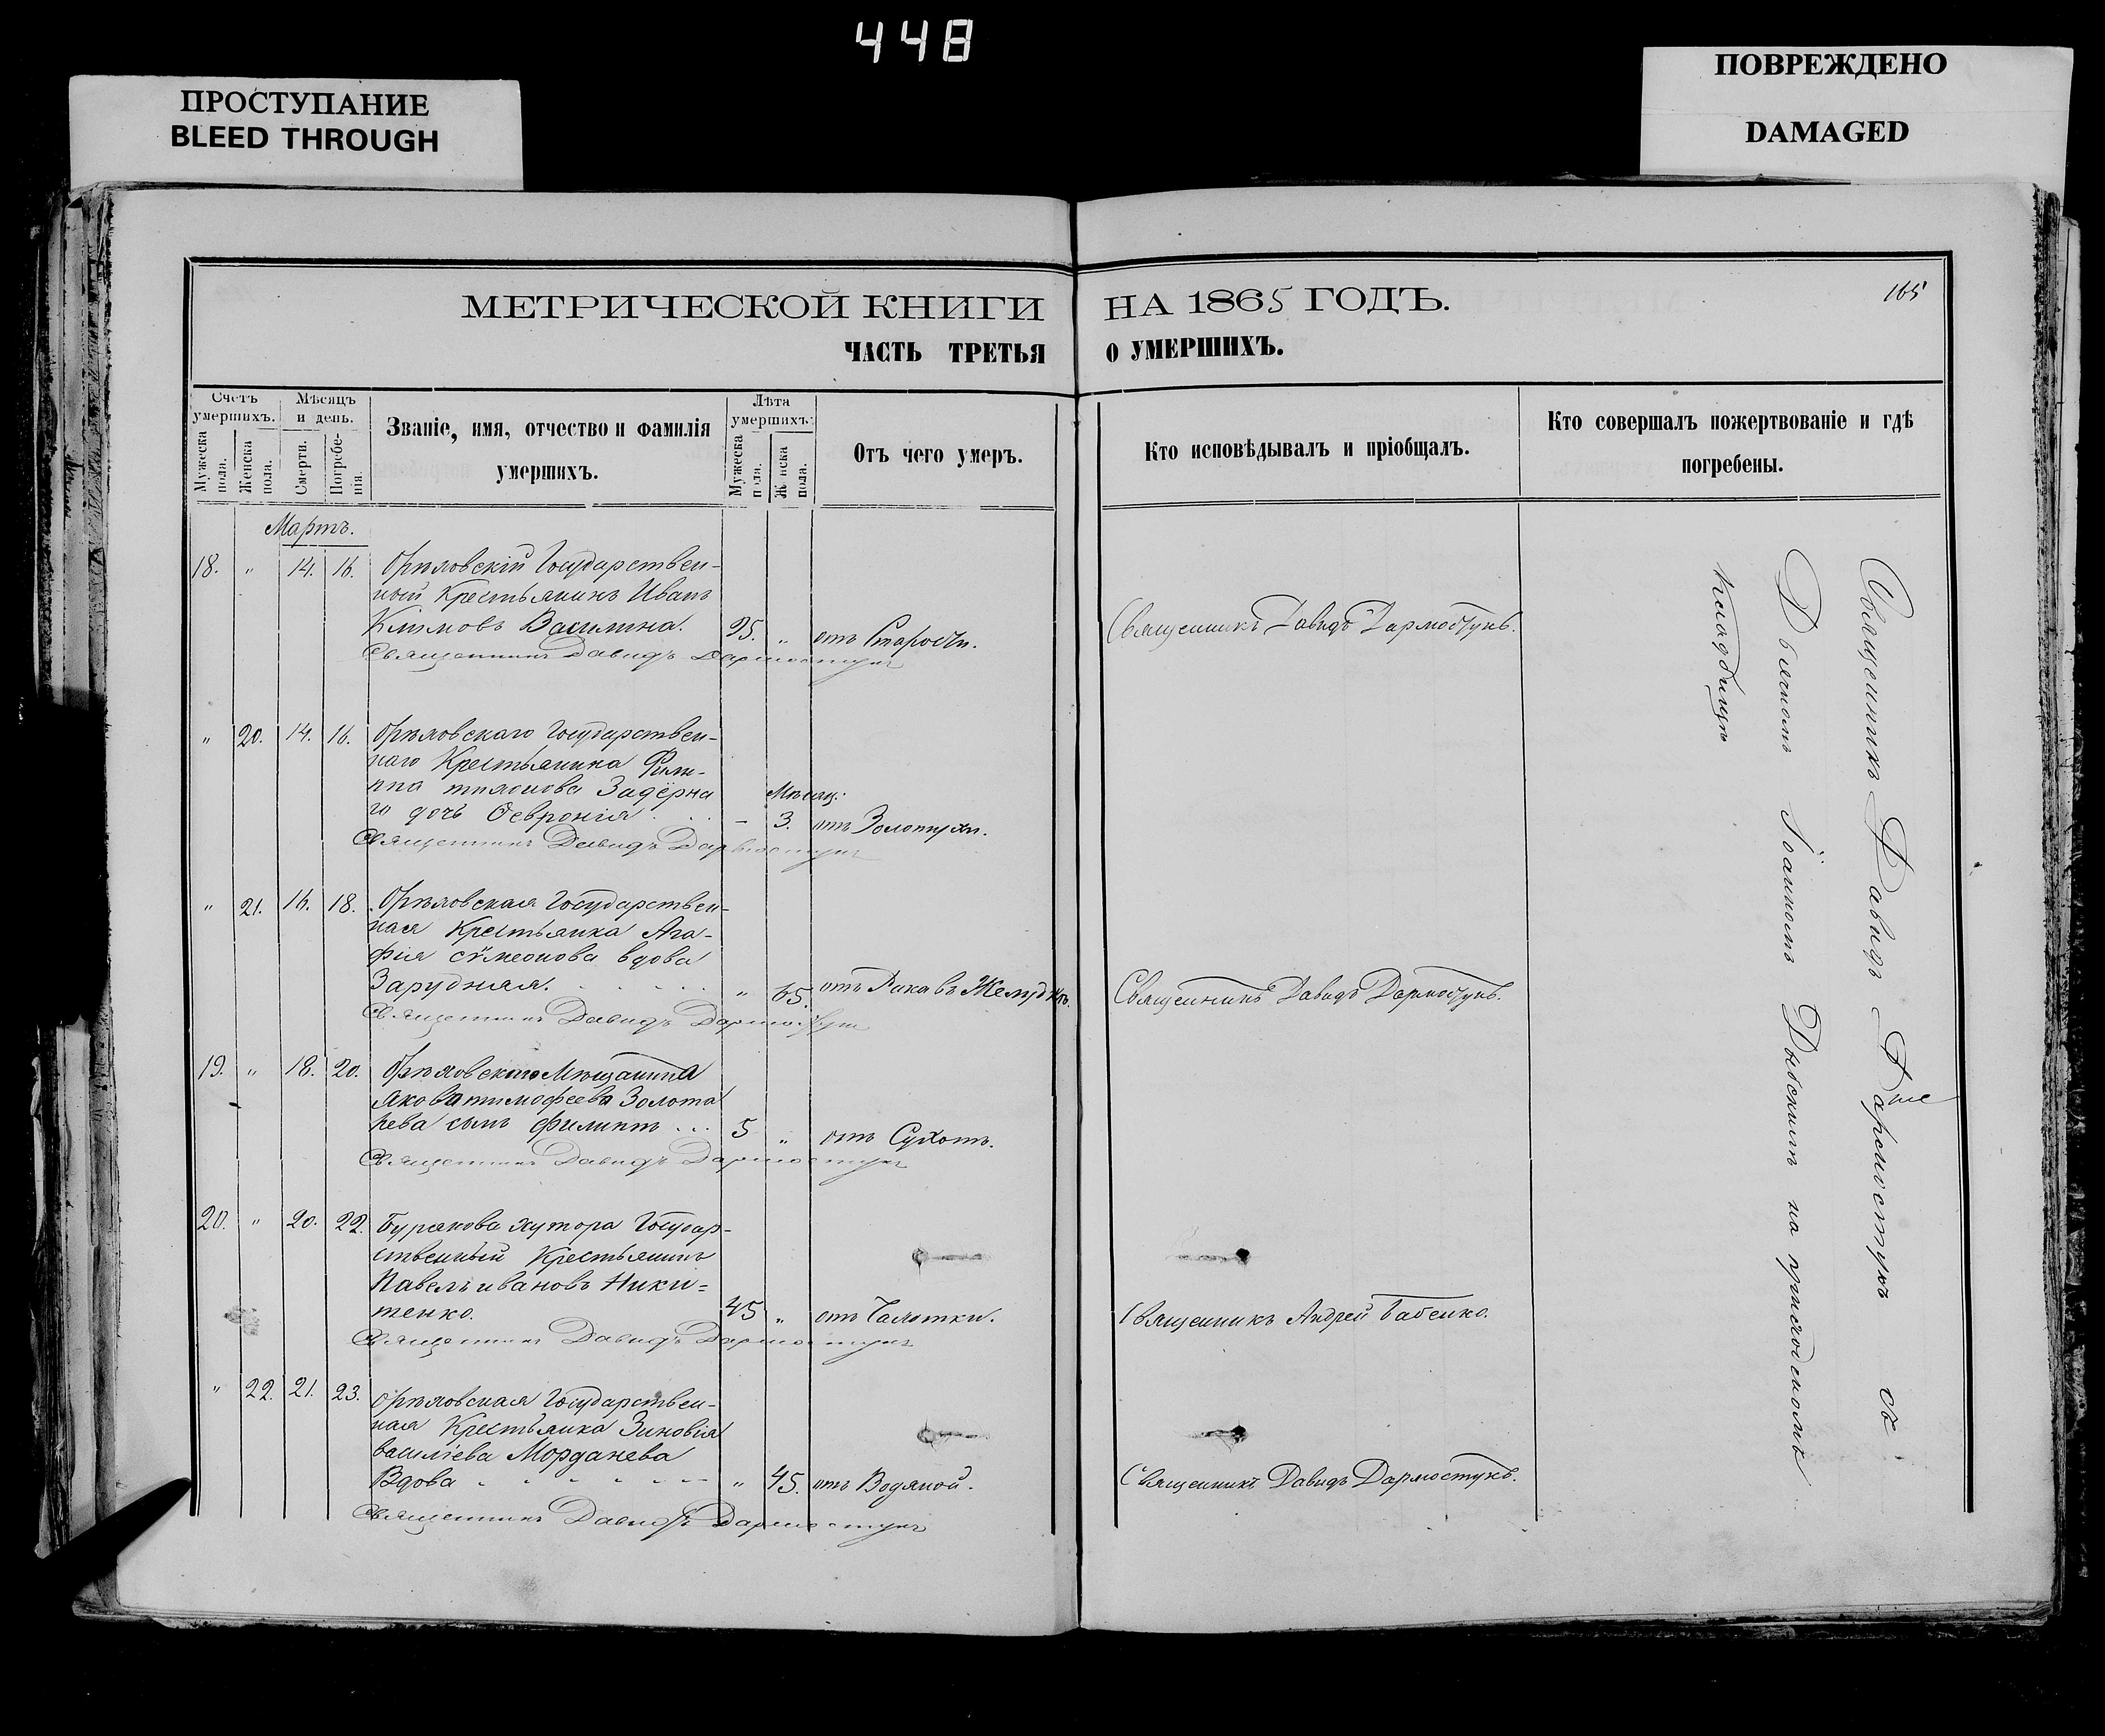 448
ПРОСТУПАНИЕ
BLEED THROUGH
ПОВРЕЖДЕНО
DAMAGED
165
МЕТРИЧЕСКОЙ КНИГИ НА 1865 ГОДЪ.
ЧАСТЬ ТРЕТЬЯ О УМЕРШИХЪ.
Счетъ умершихъ.
Мужеска пола.
Женска пола.
Мѣсяцъ и день.
Смерти.
Погребенія.
Званіе, имя, отчество и фамилія
умершихъ.
Лѣта умершихъ.
Мужеска пола.
Женска пола.
Отъ чего умеръ.
Кто исповѣдывалъ и пріобщалъ.
Кто совершалъ пожертвованіе и гдѣ
погребены.
Мартъ.
18. " 14. 16. Орѣховскій Государствен-
ный Крестьянинъ Иванъ
Климовъ Василина. 95. " отъ Старости. Священникъ Давидъ Дармостукъ.
Священникъ Давидъ Дармостукъ
" 20. 14. 16. Орѣховскаго Государствен-
наго Крестьянина Фили-
ппа Задёрна
го дочь Февронія Мѣсяц: - 3. отъ Золотухи.
Священникъ Давидъ Дармостукъ
" 21. 16. 18. Орѣховская Государствен-
ная Крестьянка Ага-
фія сѵмеонова вдова
Зарудняя. " 65. отъ Рака въ Желудкѣ. Священникъ Давидъ Дармостукъ.
Священникъ Давидъ Дармостукъ
19. " 18. 20. Орѣховскаго Мѣщанина
Якова тимофеева Золота
рева сынъ филиппъ ... 5 " отъ Сухотъ.
Священникъ Давидъ Дармостукъ
20. " 20. 22. Бурякова хутора Государ-
ственный Крестьянинъ
Павелъ ивановъ Ники=
тенко. 45 " отъ Чахотки. Священникъ Андрей Бабенко.
Священникъ Давидъ Дармостукъ
" 22. 21. 23. Орѣховская Государствен-
ная Крестьянка Зиновія
васильева
Вдова " 45. отъ Водяной. Священникъ Давидъ Дармостукъ.
Священникъ Давидъ Дармостукъ
Священникъ Давидъ Дармостукъ съ
Дьячкомъ Іоанномъ на приходскомъ
кладбищѣ